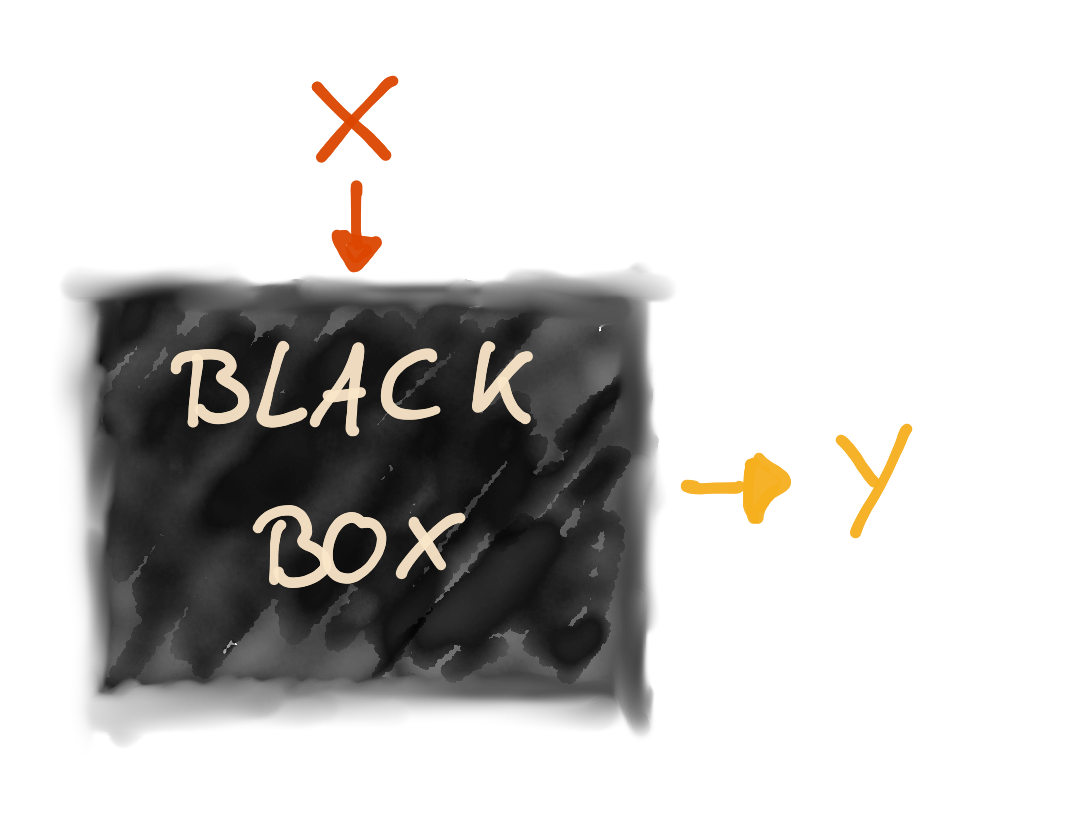 X
BLACK
BOX
Y